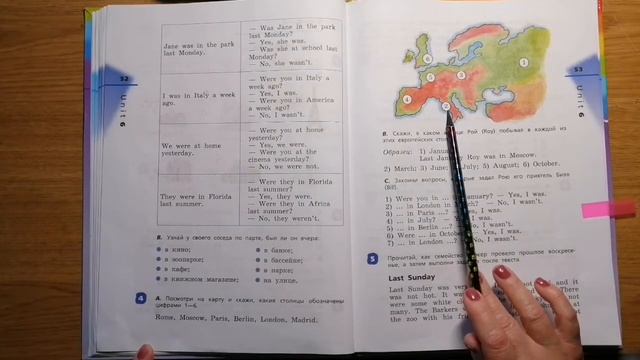 Jane was in the park
last Monday.
— Was Jane in the park
last Monday?
— Yes, she was.
— Was she at school last
Monday?
— No, she wasn't.
I was in Italy a week
ago.
— Were you in Italy a
week ago?
— Yes, I was.
— Were you in America
a week ago?
— No, I wasn't.
We were at home
yesterday.
— Were you at home
yesterday?
— Yes, we were.
— Were you at the
cinema yesterday?
— No, we were not.
They were in Florida
last summer.
— Were they in Florida
last summer?
— Yes, they were.
— Were they in Africa
last summer?
— No, they weren't.
52
Unit 6
B. Узнай у своего соседа по парте, был ли он вчера:
в кино;
в зоопарке;
в кафе;
в книжном магазине;
в банке;
в бассейне;
в парке;
на улице.
4 A. Посмотри на карту и скажи, какие столицы обозначены
цифрами 1—6.
Rome, Moscow, Paris, Berlin, London, Madrid.
53
Unit 6
B. Скажи, в каком Рой (Roy) побывал в каждой из
этих европейских
Образец: 1)
Last Roy was in Moscow.
2) March; 3) June; July; 5) August; 6) October.
C. Закончи вопросы, задал Рою его приятель Билл
(Bill).
1) Were you in ... — Yes, I was.
2) ... in London in — No, I wasn't.
3) ... in Paris ... I was.
4) ... in July? — was.
5) ... in Berlin ... No, I wasn't.
6) Were ... in — Yes, I was.
7) ... in London ... No, I wasn't.
5 Прочитай, как провело прошлое воскресе-
нье, а затем выполни после текста.
Last Sunday
Last Sunday was and it
was not hot. It There
were some white not
many. The Barkers at
the zoo with his